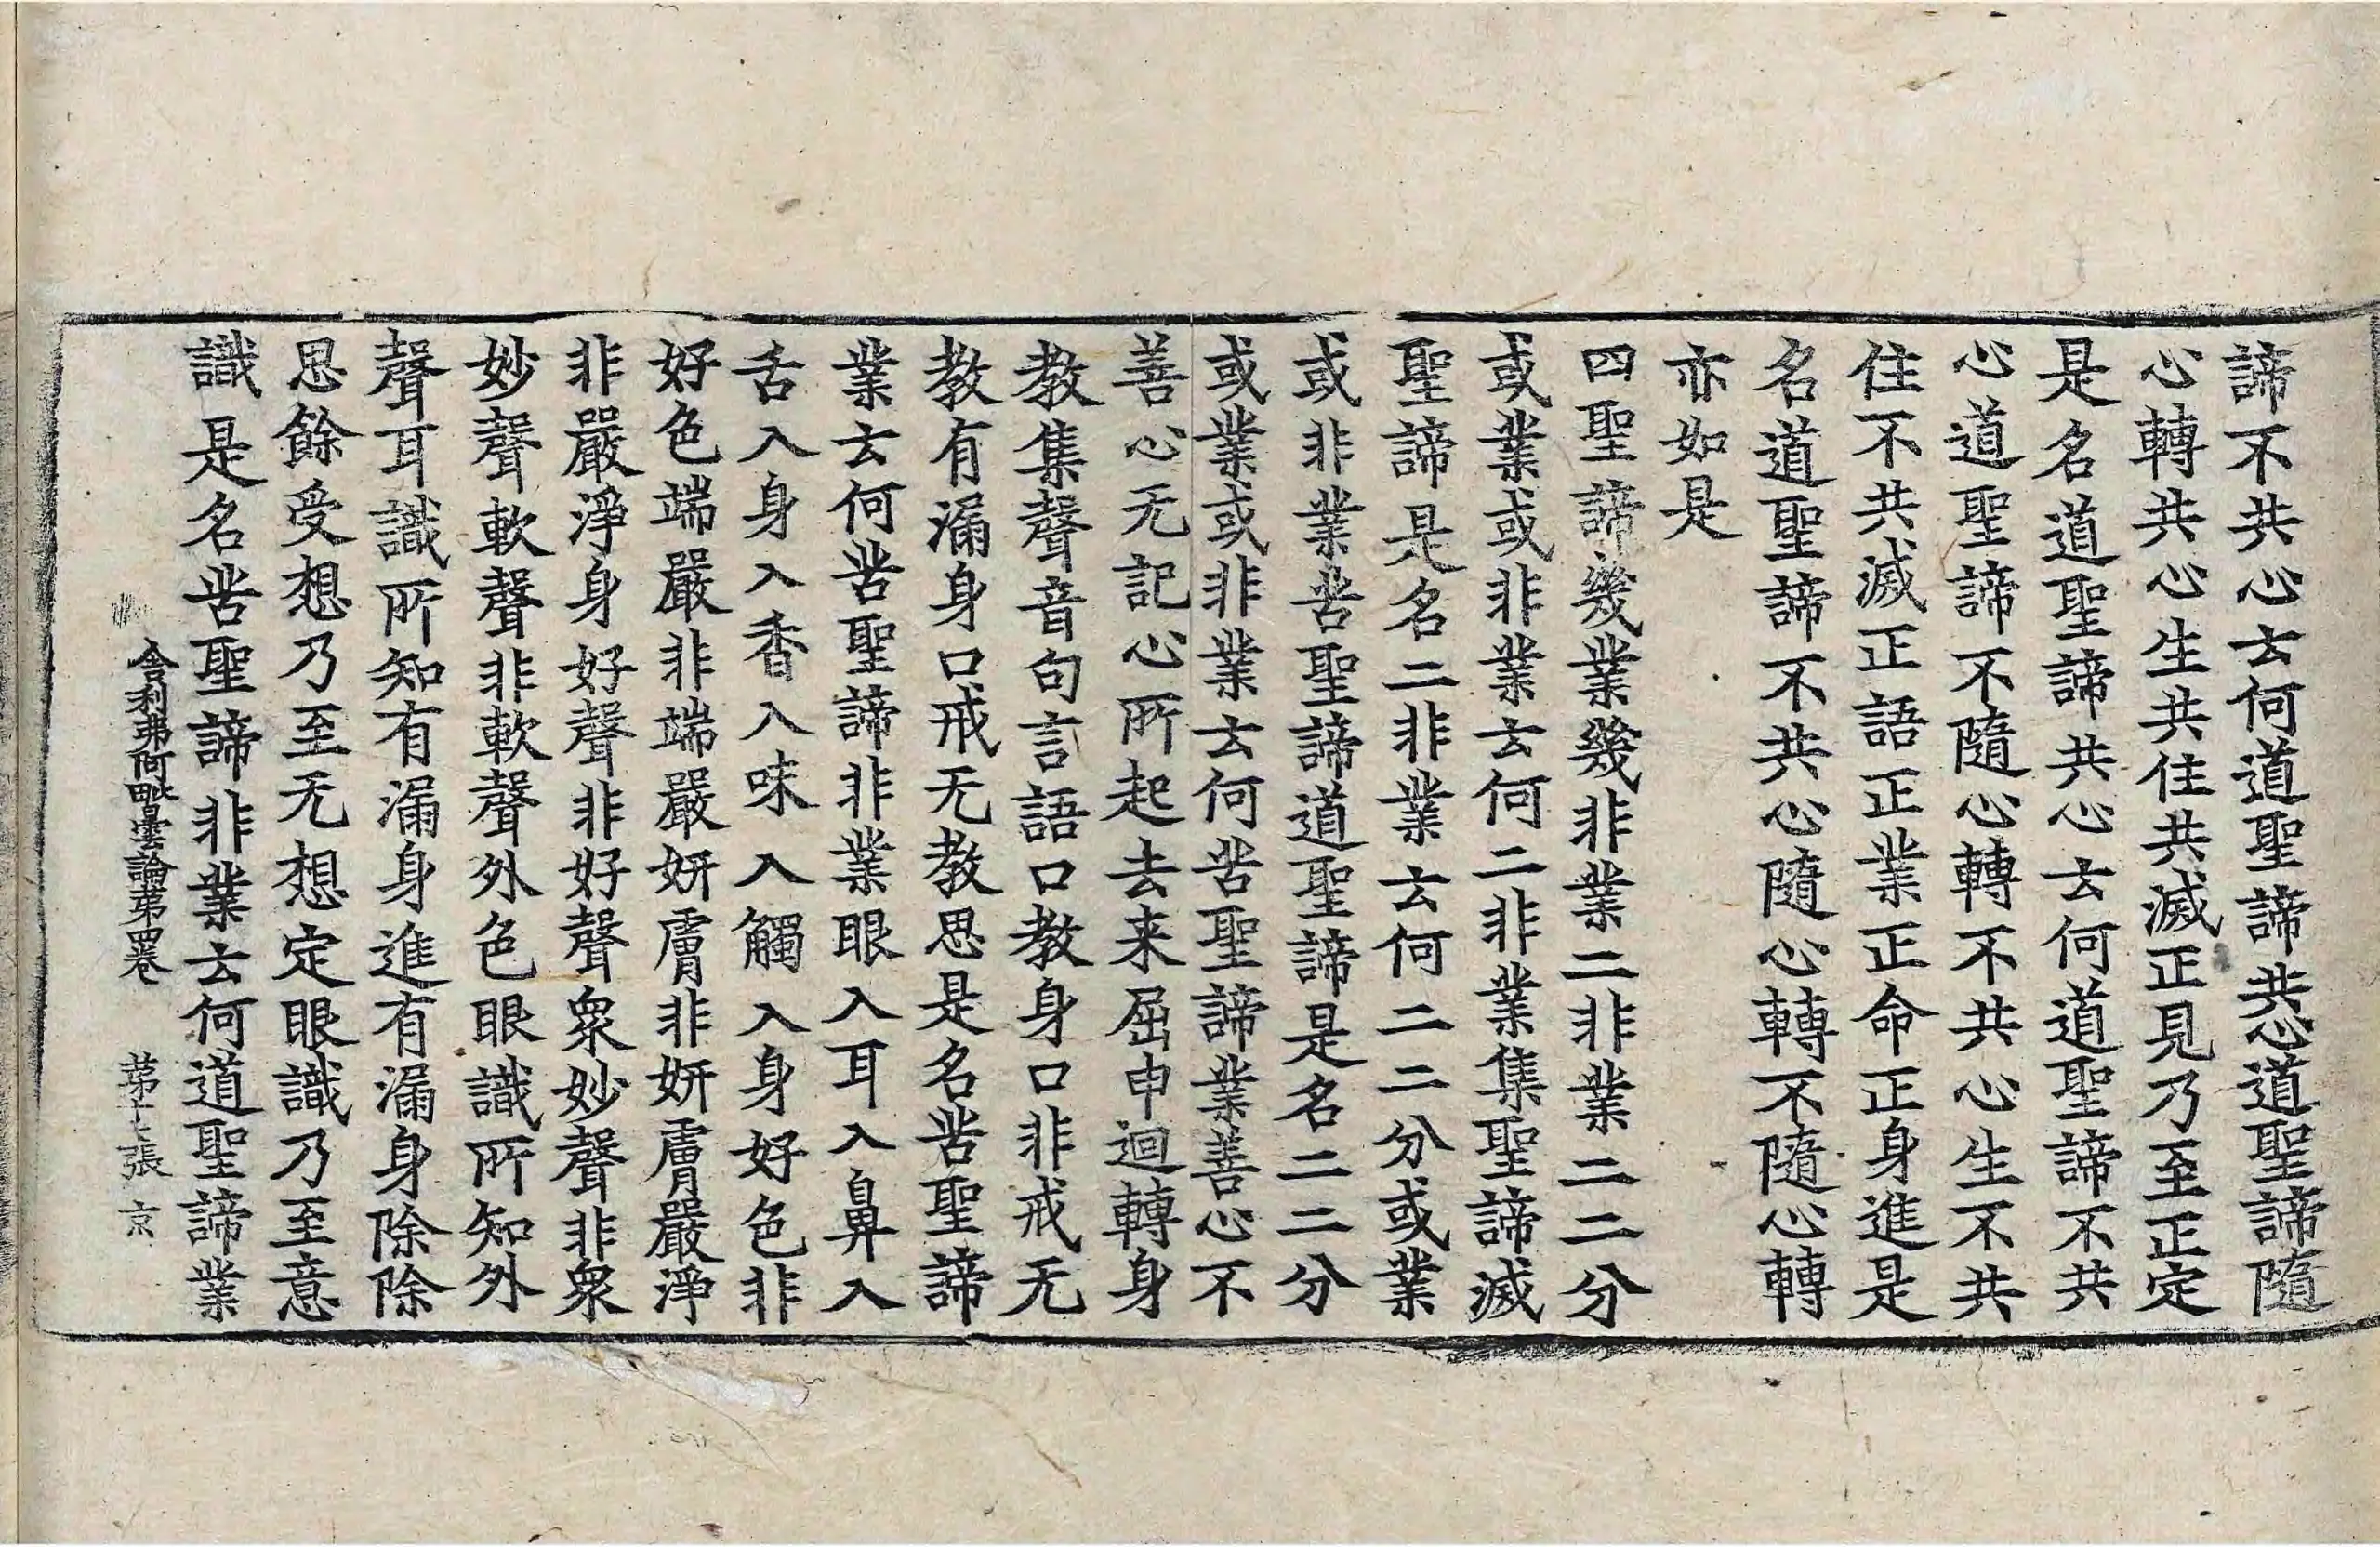 諦不共心云何道聖諦共心道聖諦隨
心轉共心生共住共滅正見乃至正定
是名道聖諦共心云何道聖諦不共
心道聖諦不隨心轉不共心生不共
住不共滅正語正業正命正身進是
名道聖諦不共心隨心轉不隨心轉
亦如是
四聖諦幾業幾非業二非業二二分
或業或非業云何二非業集聖諦滅
聖諦是名二非業云何二二分或業
或非業苦聖諦道聖諦是名二二分
或業或非業云何苦聖諦業善心不
善心无記心所起去来屈申迴轉身
教集聲音句言語口教身口非戒无
教有漏身口戒无教思是名苦聖諦
業云何苦聖諦非業眼入耳入鼻入
舌入身入香入味入觸入身好色非
好色端嚴非端嚴妍膚非妍膚嚴淨
非嚴淨身好聲非好聲衆妙聲非衆
妙聲軟聲非軟聲外色眼識所知外
聲耳識所知有漏身進有漏身除除
思餘受想乃至无想定眼識乃至意
識是名苦聖諦非業云何道聖諦業
舍利弗阿毗曇論第四卷 第十七張 京